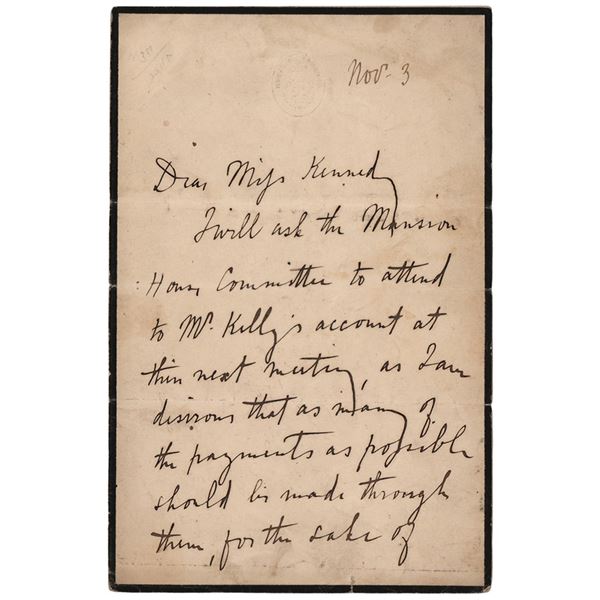 Nov. 3
Dear Miss Kennedy
I will ask the Mansion
House Committee to attend
to Mr. Kelly's account at
their next meeting, as I am
desirous that as many of
the payments as possible
should be made through
them, for the sake of